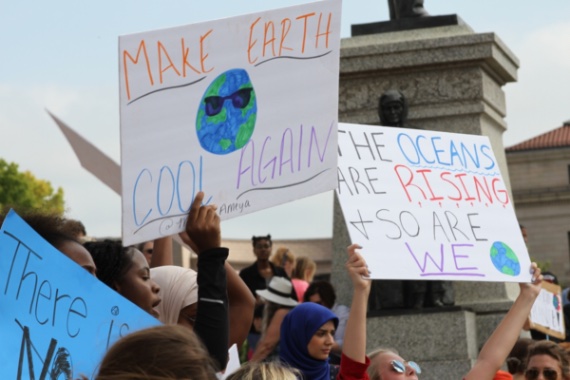 MAKE EARTH
COOL AGAIN
THE OCEANS
ARE RISING
+ SO ARE
WE
There is
NO